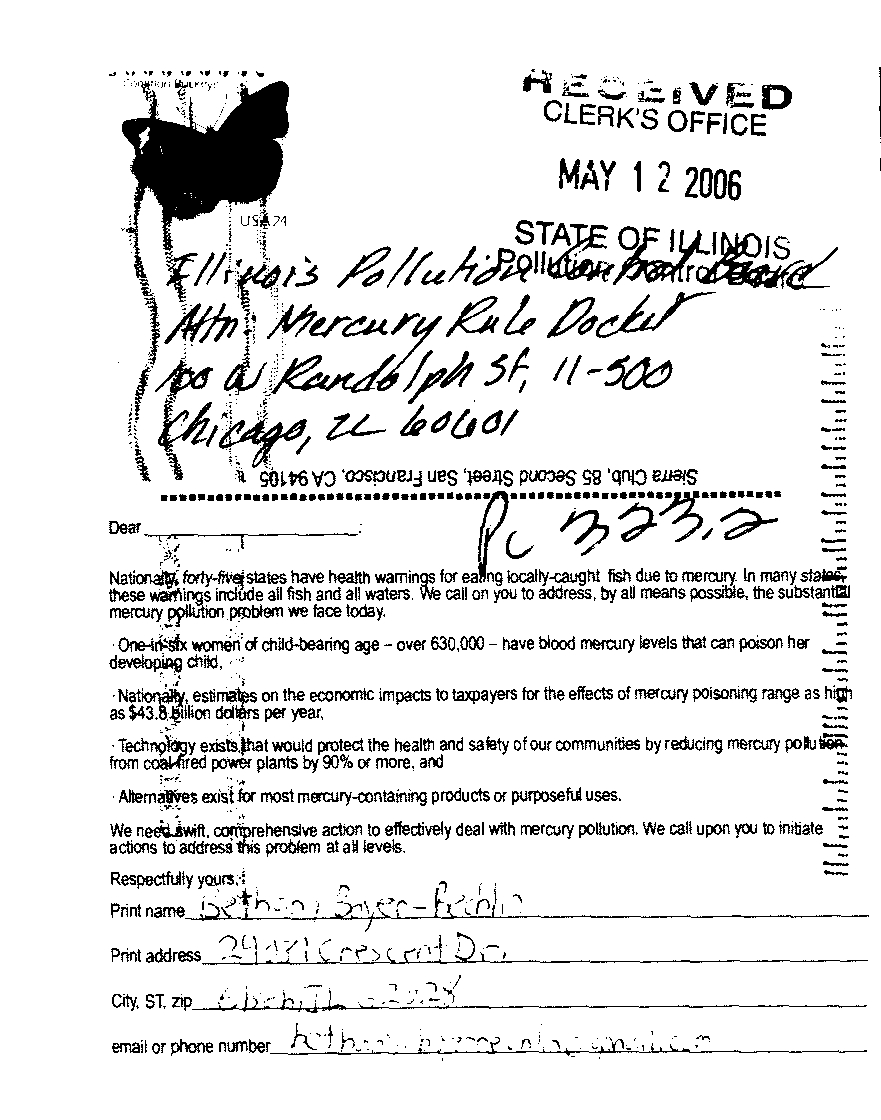 RECEIVED
CLERK'S OFFICE
MAY 12 2006
STATE OF ILLINOIS
Pollution Control Board
USA 24
Illinois Pollution Control Board
Attn: Mercury Rule Docket
100 W Randolph St, 11-500
Chicago, IL 60601
Sierra Club, 85 Second Street, San Francisco, CA 94105
PC 323.2
Dear
Nationally, forty-five states have health warnings for eating locally-caught fish due to mercury. In many states,
these warnings include all fish and all waters. We call on you to address, by all means possible, the substantial
mercury pollution problem we face today.
· One-in-six women of child-bearing age – over 630,000 – have blood mercury levels that can poison her
developing child,
· Nationally, estimates on the economic impacts to taxpayers for the effects of mercury poisoning range as high
as $43.8 billion dollars per year,
· Technology exists that would protect the health and safety of our communities by reducing mercury pollution
from coal-fired power plants by 90% or more, and
· Alternatives exist for most mercury-containing products or purposeful uses.
We need swift, comprehensive action to effectively deal with mercury pollution. We call upon you to initiate
actions to address this problem at all levels.
Respectfully yours,
Print name Bethany
Print address Crescent Dr.
City, ST, zip
email or phone number